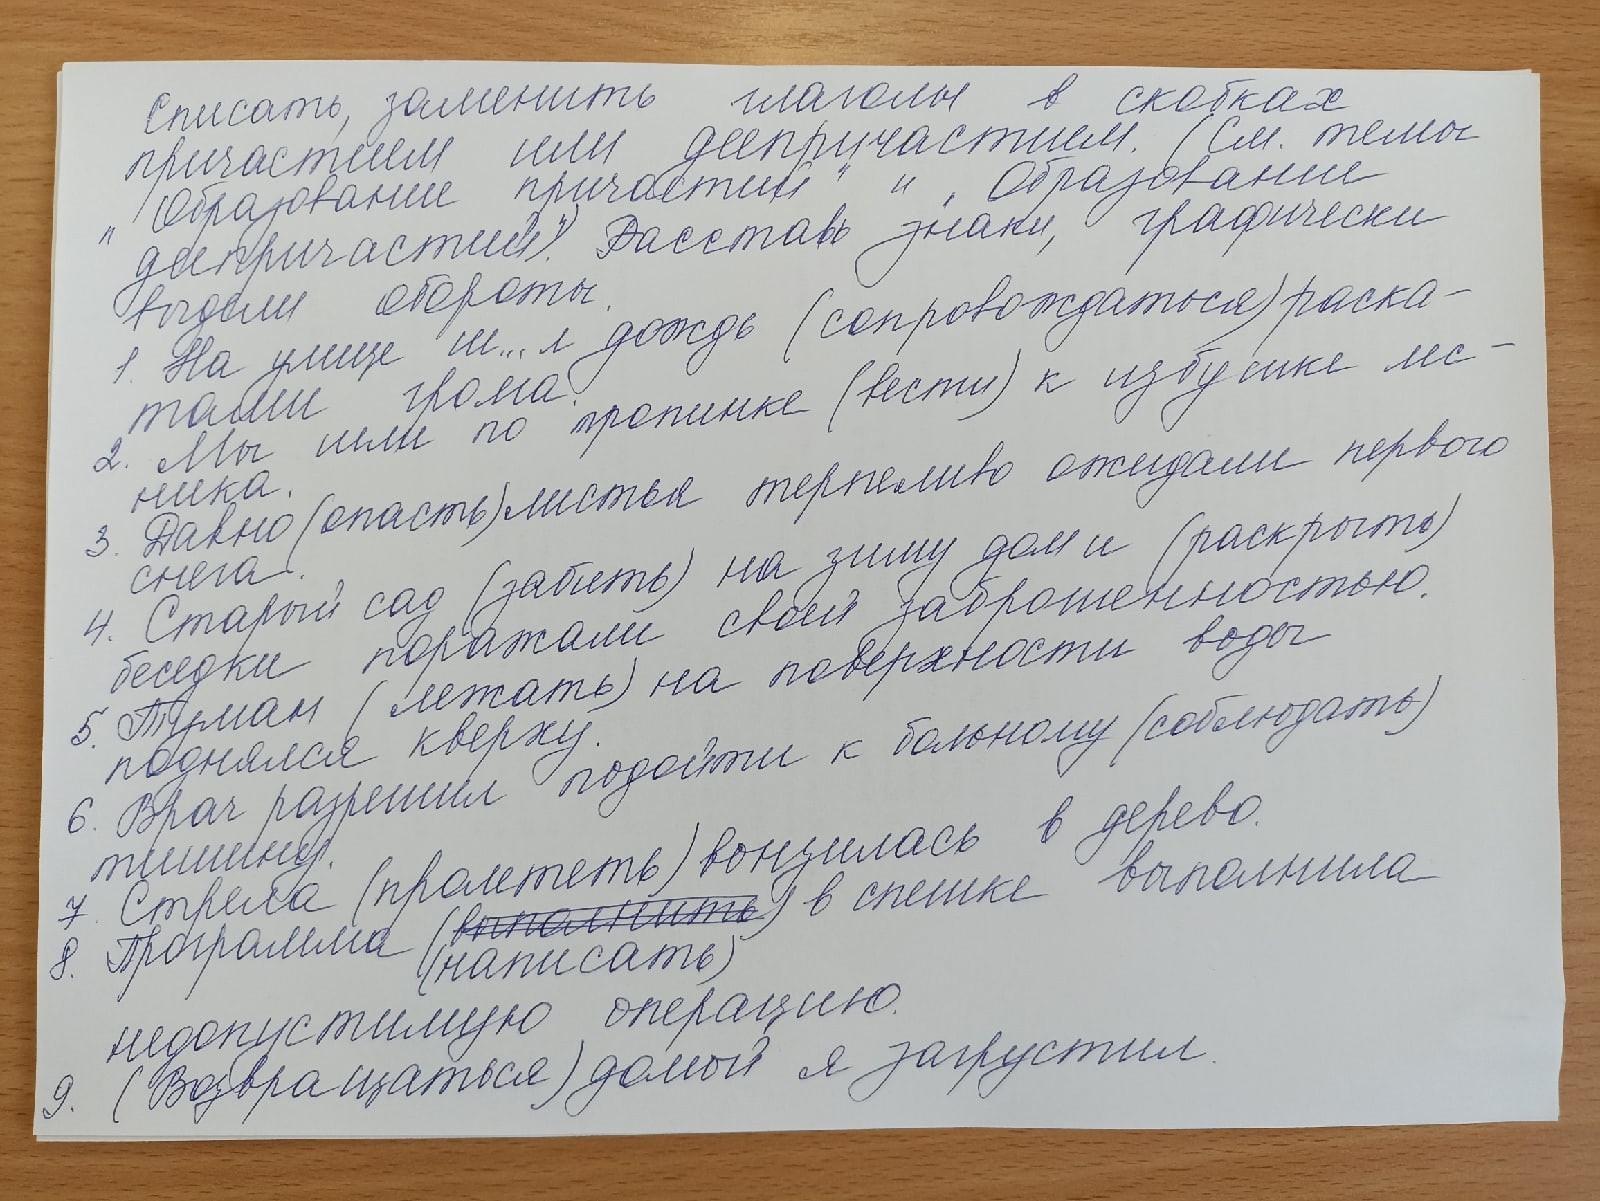 Списать, заменить глаголы в скобках
причастием или деепричастием. (См. темы
„Образование причастий" и „Образование
деепричастий"). Расставь знаки, графически
выдели обороты.
1. На улице ш...л дождь (сопровождаться) раска-
тами грома.
2. Мы шли по тропинке (вести) к избушке лес-
ника.
3. Давно (опасть) листья терпеливо ожидали первого
снега.
4. Старый сад (забить) на зиму дом и (раскрыть)
беседки поражали своей заброшенностью.
5. Туман (лежать) на поверхности воды
поднялся кверху.
6. Врач разрешил подойти к больному (соблюдать)
тишину.
7. Стрела (пролететь) вонзилась в дерево.
8. Программа (выполнить) в спешке выполнила
(написать)
недопустимую операцию.
9. (Возвращаться) домой я загрустил.